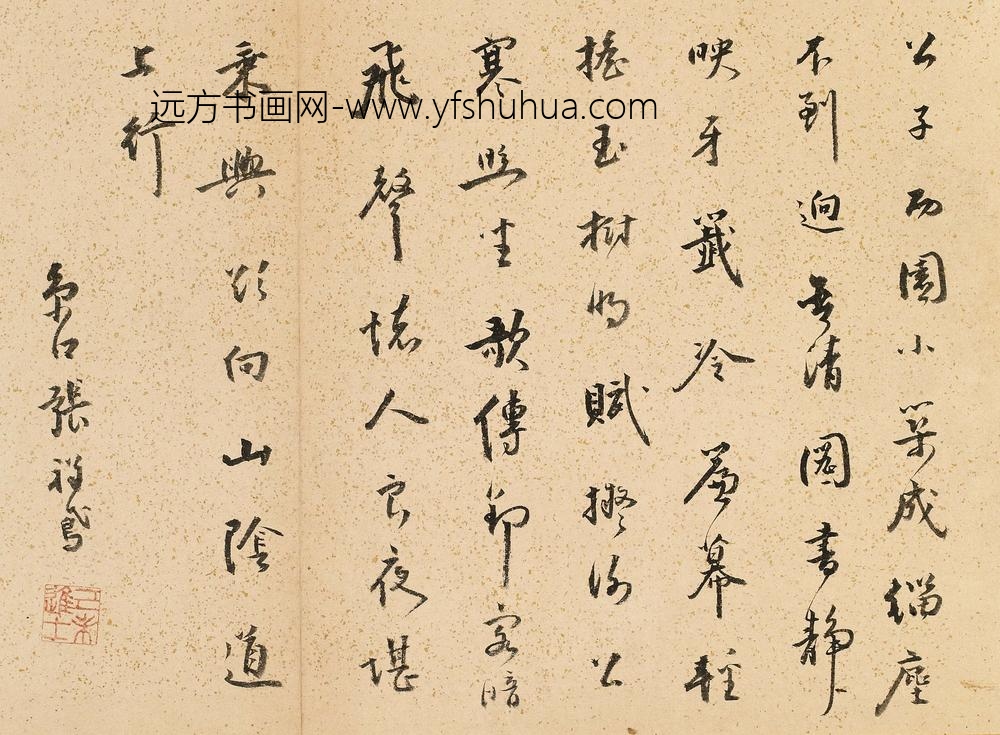 公子西園小築成緇塵
不到迥餘清圖書靜
映牙籤冷簾幕輕
搖玉樹明賦擬謝公
寒照坐歌傳郢客暗
飛聲懷人良夜堪
乘興欲向山陰道
上行
京口張祖
己未進士
远方书画网-www.yfshuhua.com